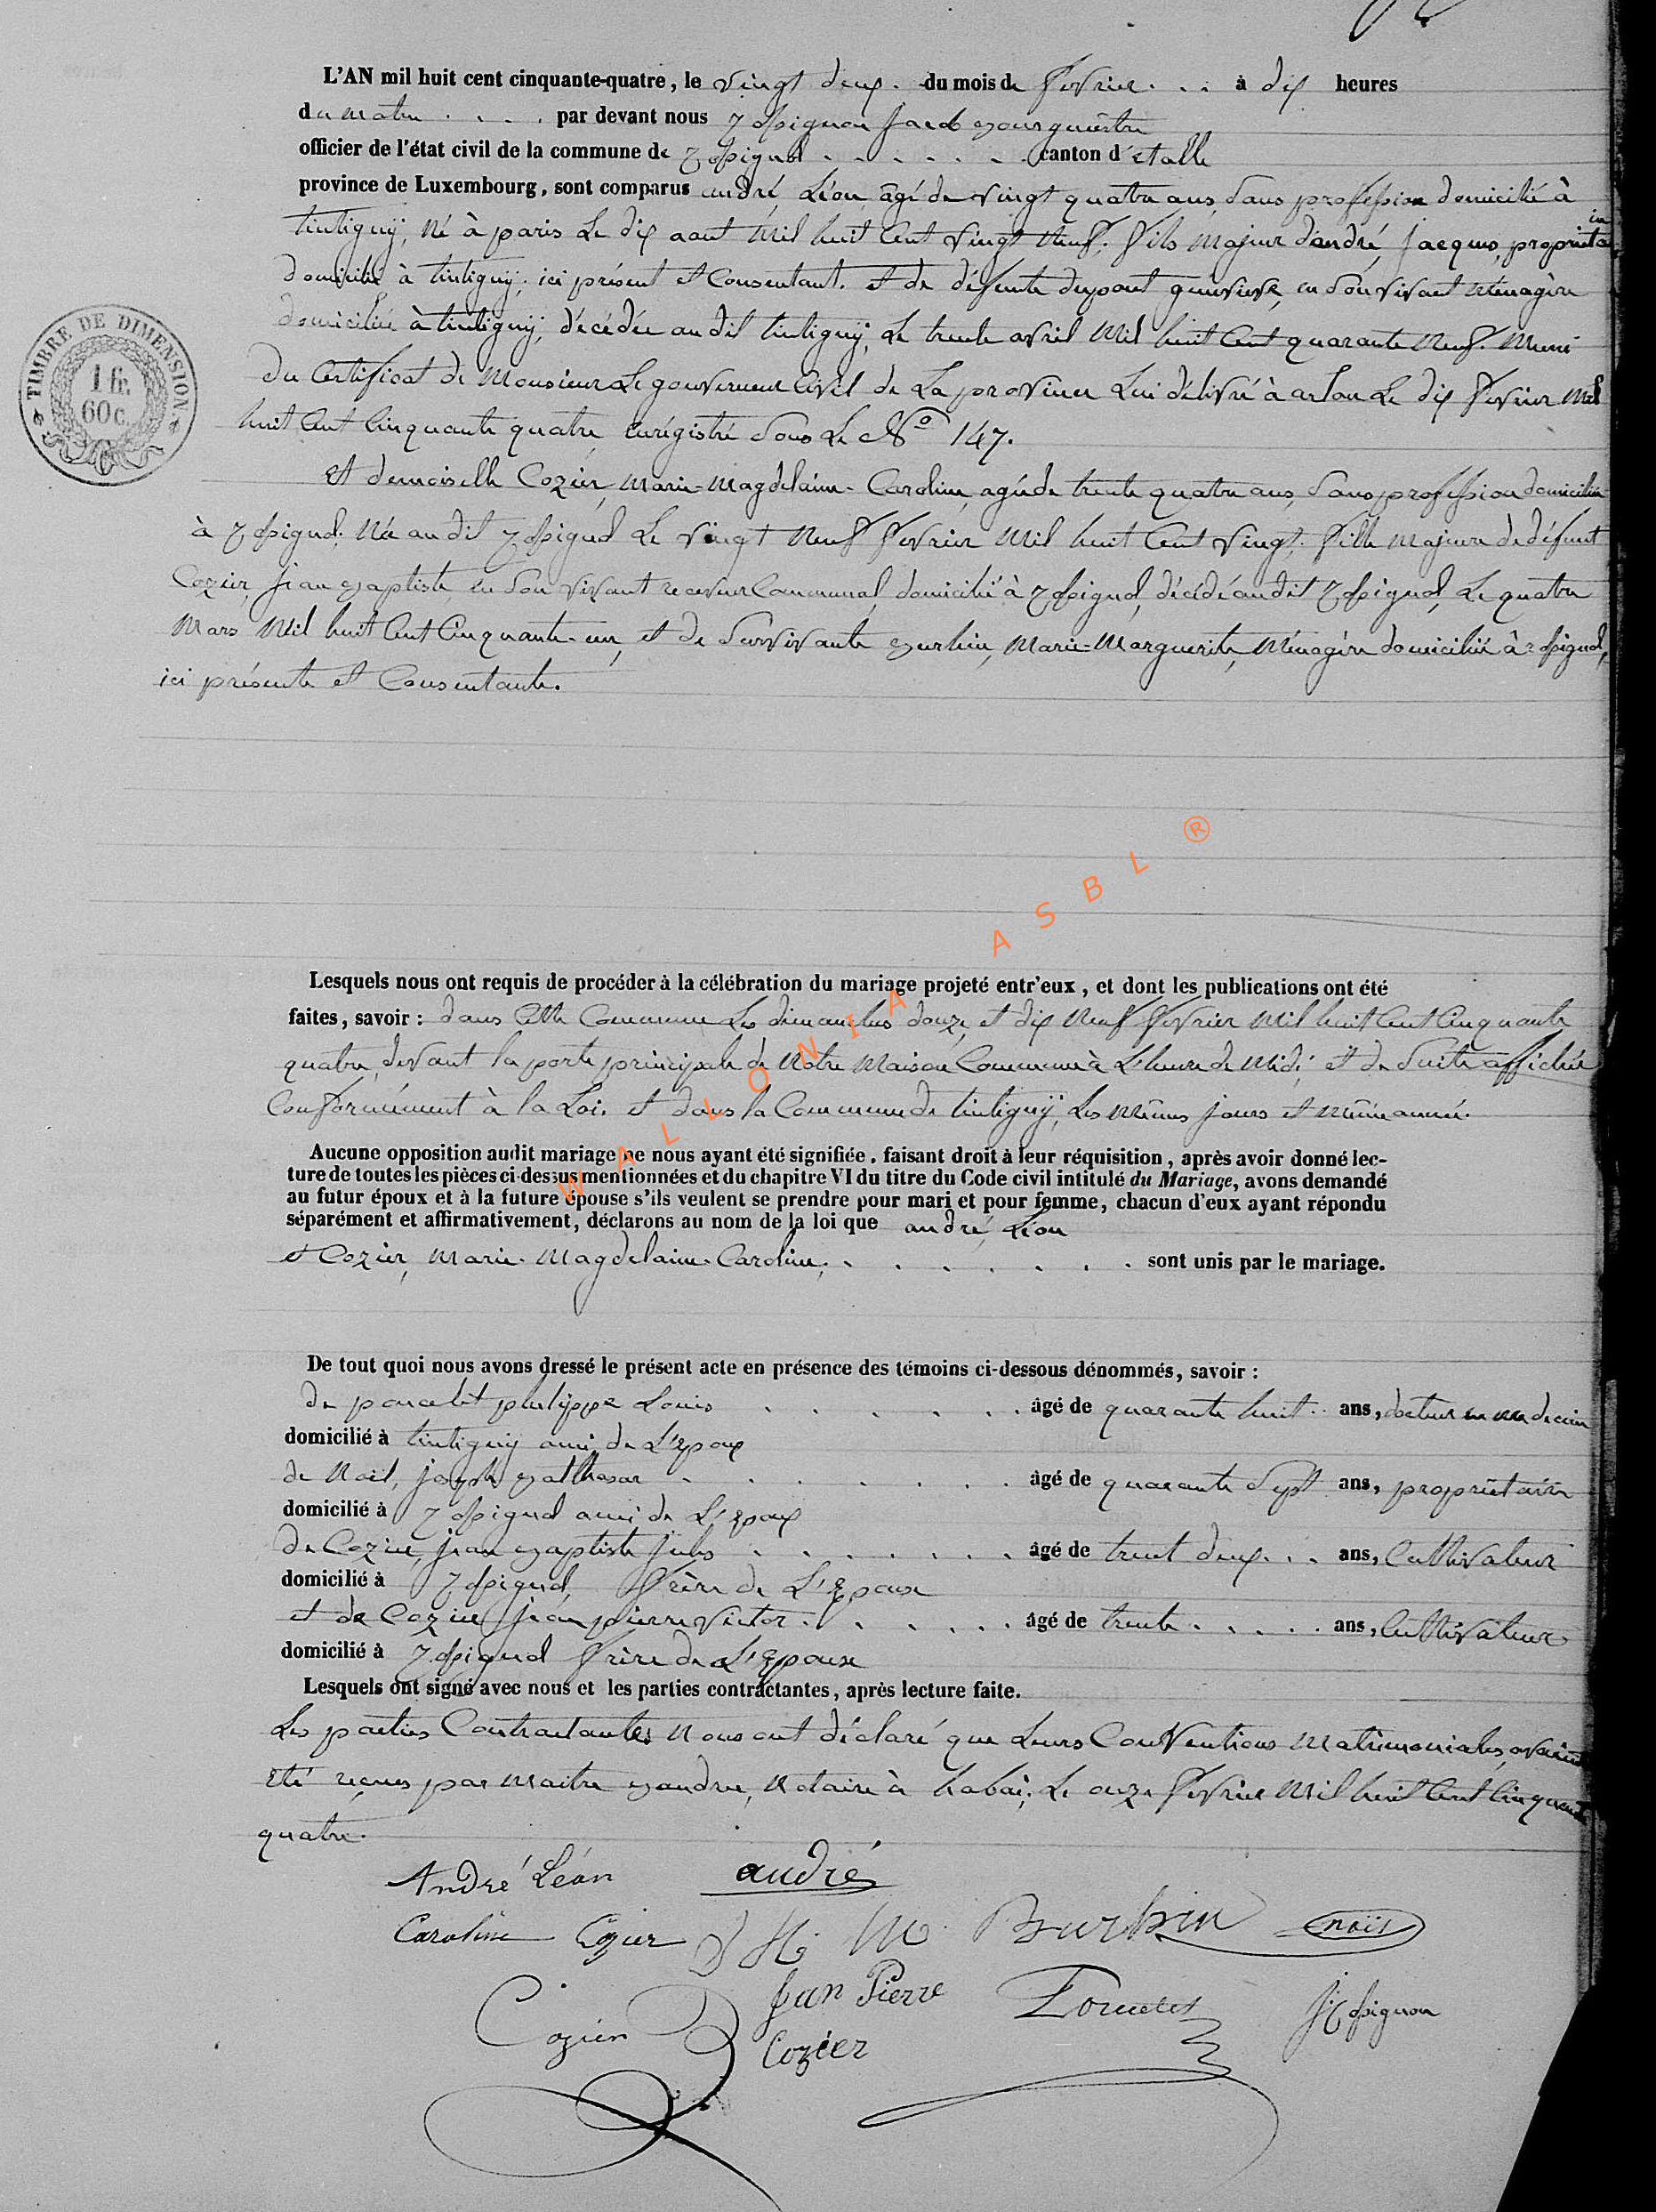 L'AN mil huit cent cinquante-quatre, le vingt deux. du mois de fevrier. . . à dix heures
du matin . . . . par devant nous rossignon Jacob bourguêstre
officier de l'état civil de la commune de rossignol . . . . . . . canton d'etalle
province de Luxembourg, sont comparus andré, Léon, âgé de vingt quatre ans, sans profession domicilié à
tintigny, né à paris le dix aout mil huit Cent vingt neuf. fils majeur d'andré, jacques, propriétaire
domicilié à tintigny; ici présent et Consentant. et de défunte dupont genevieve, en son vivant ménagère
domiciliée à tintigny, décédée au dit tintigny, le trente avril mil huit Cent quarante neuf. Muni
du Certificat de Monsieur le gouverneur Civil de la province lui délivré à arlon le dix fevrier mil
huit Cent Cinquante quatre enrégistré sous le No 147.
et demoiselle Cozier, marie-magdelaine-Caroline, agée de trente quatre ans, sans profession domiciliée
à rossignol. Née au dit rossignol le vingt neuf fevrier mil huit Cent vingt. fille majeure de défunt
Cozier, jean baptiste, en son vivant receveur Communal, domicilié à rossignol, décédé au dit rossignol, le quatre
mars mil huit Cent Cinquante-un, et de survivante burhin, Marie-Marguerite, Ménagère domiciliée à rossignol,
ici présente et Consentante.
TIMBRE DE DIMENSION
1 fr.
60c.
Lesquels nous ont requis de procéder à la célébration du mariage projeté entr'eux, et dont les publications ont été
faites, savoir : dans Cette Commune les dimanches douze, et dix neuf fevrier mil huit Cent Cinquante
quatre, devant la porte principale de Notre Maison Commune à l'heure de midi; et de suite affichée
Conformément à la Loi. et dans la Commune de tintigny, les mêmes jours et même année.
Aucune opposition audit mariage ne nous ayant été signifiée, faisant droit à leur réquisition, après avoir donné lec-
ture de toutes les pièces ci-dessus mentionnées et du chapitre VI du titre du Code civil intitulé du Mariage, avons demandé
au futur époux et à la future épouse s'ils veulent se prendre pour mari et pour femme, chacun d'eux ayant répondu
séparément et affirmativement, déclarons au nom de la loi que andré, Léon
et Cozier, marie-magdelaine-Caroline, . . . . . . . . sont unis par le mariage.
De tout quoi nous avons dressé le présent acte en présence des témoins ci-dessous dénommés, savoir :
de philippe Louis . . . . . . . âgé de quarante huit . . ans, docteur en medecine
domicilié à tintigny ami de l'epoux
de Noël, joseph balthasar . . . . . . . âgé de quarante sept ans, propriétaire
domicilié à rossignol ami de l'epoux
de Cozier, jean baptiste jules . . . . . . . âgé de trent deux . . . ans, Cultivateur
domicilié à rossignol, frère de l'Epouse
et de Cozier, jean pierre victor . . . . . . . âgé de trente . . . . . ans, Cultivateur
domicilié à rossignol frère de l'Epouse
Lesquels ont signé avec nous et les parties contractantes, après lecture faite.
Les parties Contractantes Nous ont déclaré que leurs Conventions matrimoniales, avaient
été reçues par maitre Notaire à habai, le onze fevrier mil huit Cent Cinquante
quatre.
André Léon andré
Caroline Cozier M. M. Burhin noël
Cozier Jean Pierre Cozier J. rossignon
WALLONIA ASBL ®